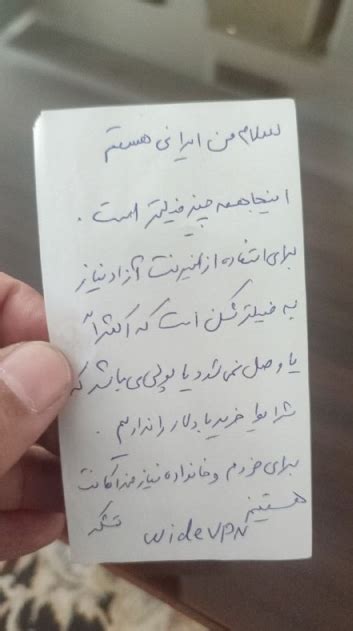 سلام من ایرانی هستم
اینجا همه چیز فیلتر است .
برای استفاده از اینترنت آزاد نیاز
به فیلتر شکن است که اکثراً
یا وصل نمی شود یا پولی می باشد که
شرایط خرید با دلار را نداریم .
برای خودم و خانواده نیازمند اکانت
هستیم
تشکر
wide VPN